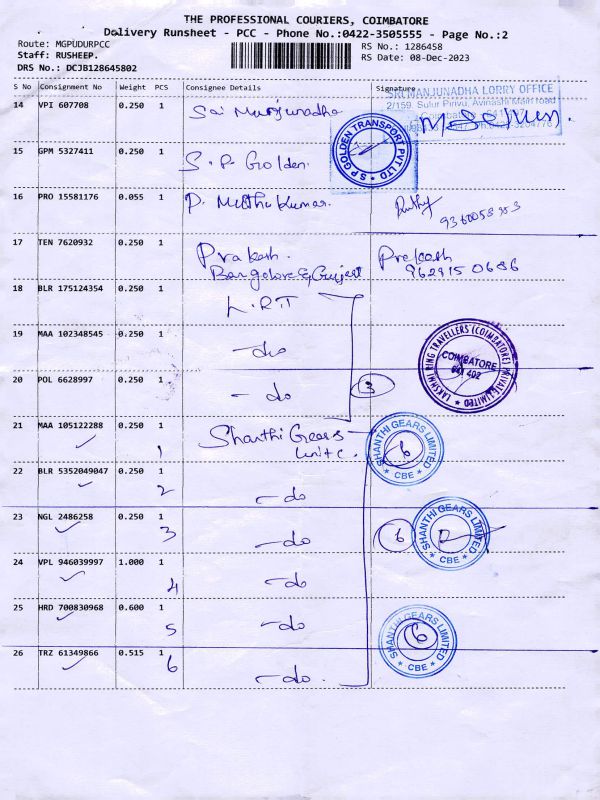 THE PROFESSIONAL COURIERS, COIMBATORE
Delivery Runsheet - PCC - Phone No.:0422-3505555 - Page No.:2
Route: MGPUDURPCC
Staff: RUSHEEP.
DRS No.: DCJB128645802
RS No.: 1286458
RS Date: 08-Dec-2023
S No Consignment No Weight PCS Consignee Details Signature
SRI MANJUNADHA LORRY OFFICE
2/159, Sulur Pirivu, Avinashi Main road
14 VPI 607708 0.250 1 Sai Munjunadha
15 GPM 5327411 0.250 1 S.P. Golden.
S P GOLDEN TRANSPORT PVT LTD
16 PRO 15581176 0.055 1 P. Muthukumar.
17 TEN 7620932 0.250 1 Prakash. Prakash
Bangalore & Gujject 9629150686
18 BLR 175124354 0.250 1 L.R.T
19 MAA 102348545 0.250 1 -do
LAKSHMI RING TRAVELLERS (COIMBATORE) PRIVATE LIMITED
COIMBATORE
641 402
20 POL 6628997 0.250 1 -do 3
21 MAA 105122288 0.250 1 Shanthi Gears
1 Unit c.
SHANTHI GEARS LIMITED CBE 6
22 BLR 5352049047 0.250 1
2 -do
23 NGL 2486258 0.250 1
3 -do 6
SHANTHI GEARS LIMITED CBE
24 VPL 946039997 1.000 1
4 -do
25 HRD 700830968 0.600 1
5 -do
SHANTHI GEARS LIMITED CBE 6
26 TRZ 61349866 0.515 1
6 -do.